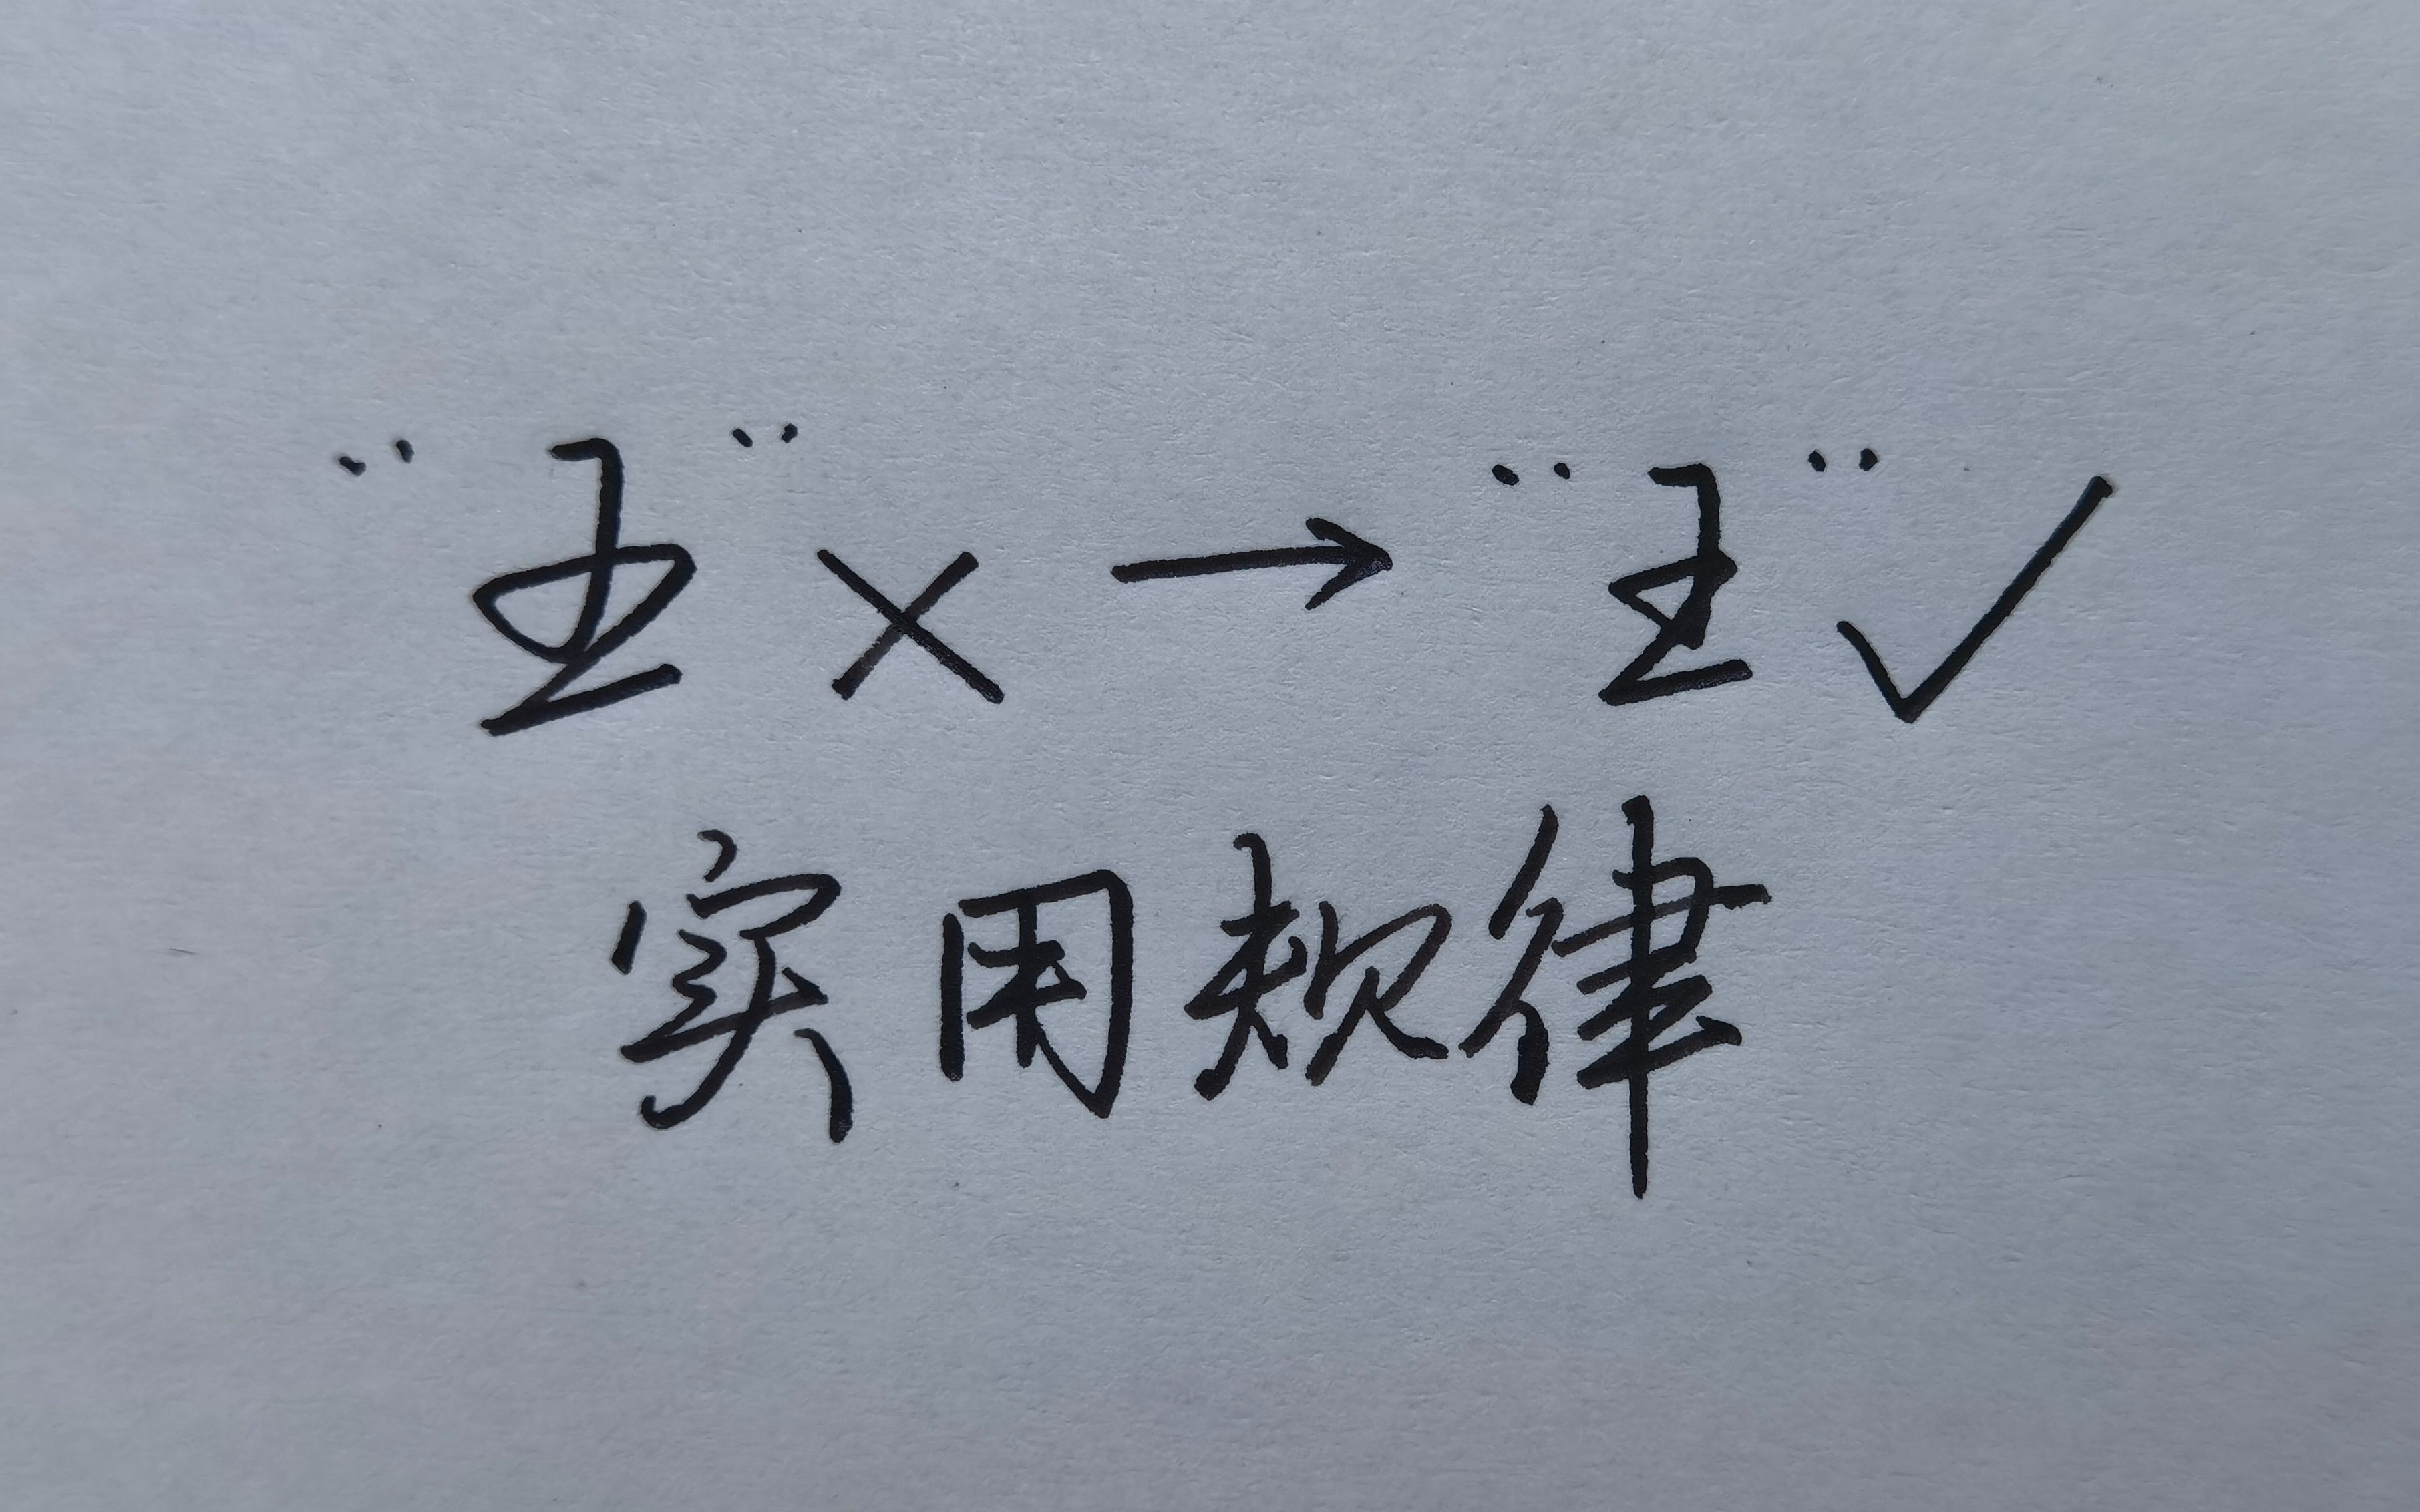 “王”×→“王”✓
实用规律